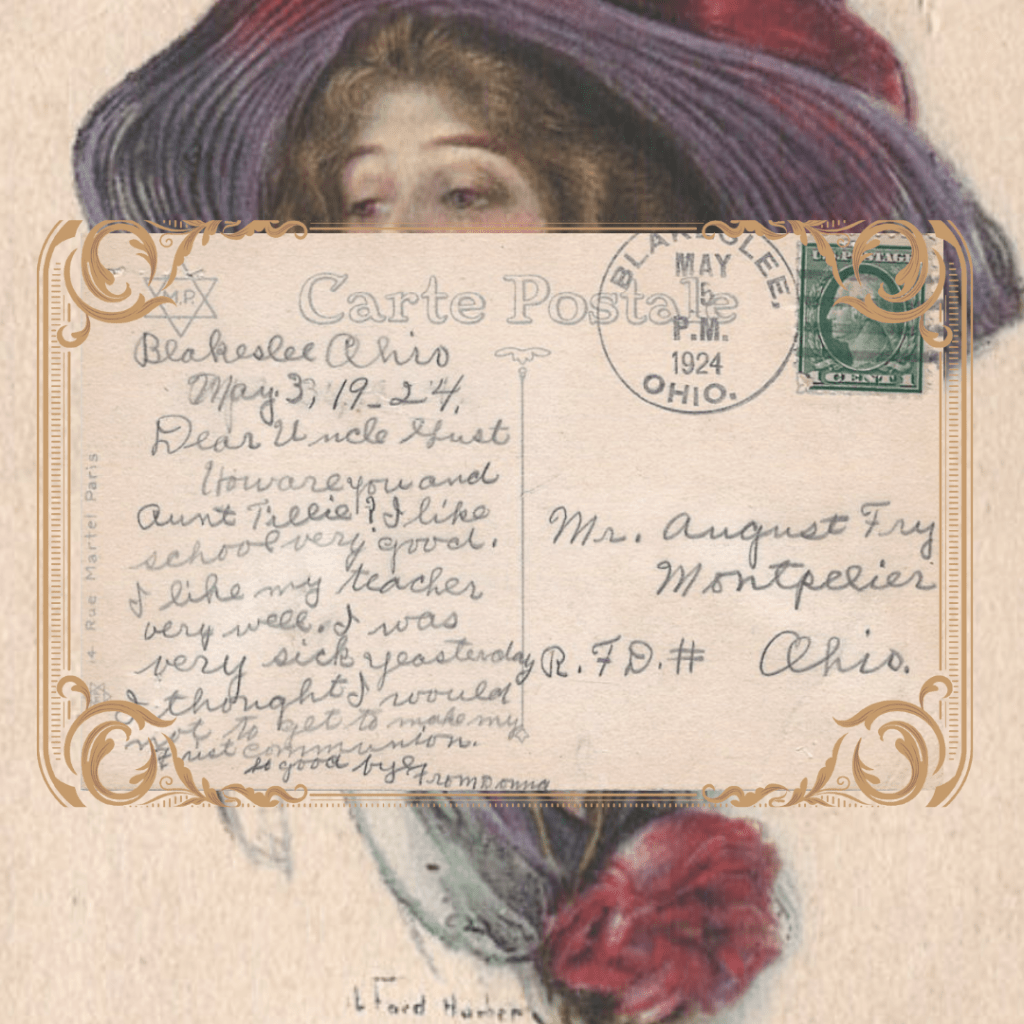 M.P.
Carte Postale
BLAKESLEE,
MAY
5
P.M.
1924
OHIO.
U.S. POSTAGE
1 CENT 1
14 Rue Martel Paris
Blakeslee Ohio
May. 3, 19-24.
Dear Uncle Gust
How are you and
Aunt Tillie? I like
school very good.
I like my teacher
very well. I was
very sick yeasterday
I thought I would
not to get to make my
First communion.
so good by
From Donna
Mr. August Fry
Montpelier
R. F D. # Ohio.